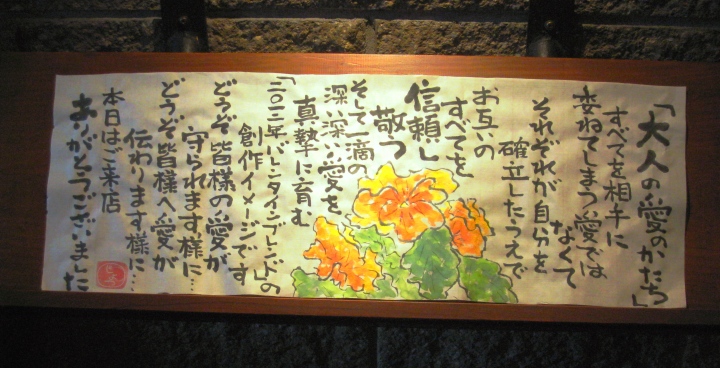 「大人の愛のかたち」
すべてを相手に
委ねてしまう愛では
なくて
それぞれが自分を
確立したうえで
お互いの
すべてを
信頼し
敬う
そして一滴の
深い深い愛を
真摯に育む
「二〇一二年バレンタインブレンド」の
創作イメージです
どうぞ皆様の愛が
守られます様に…
どうぞ皆様へ愛が
伝わります様に…
本日はご来店
ありがとうございました